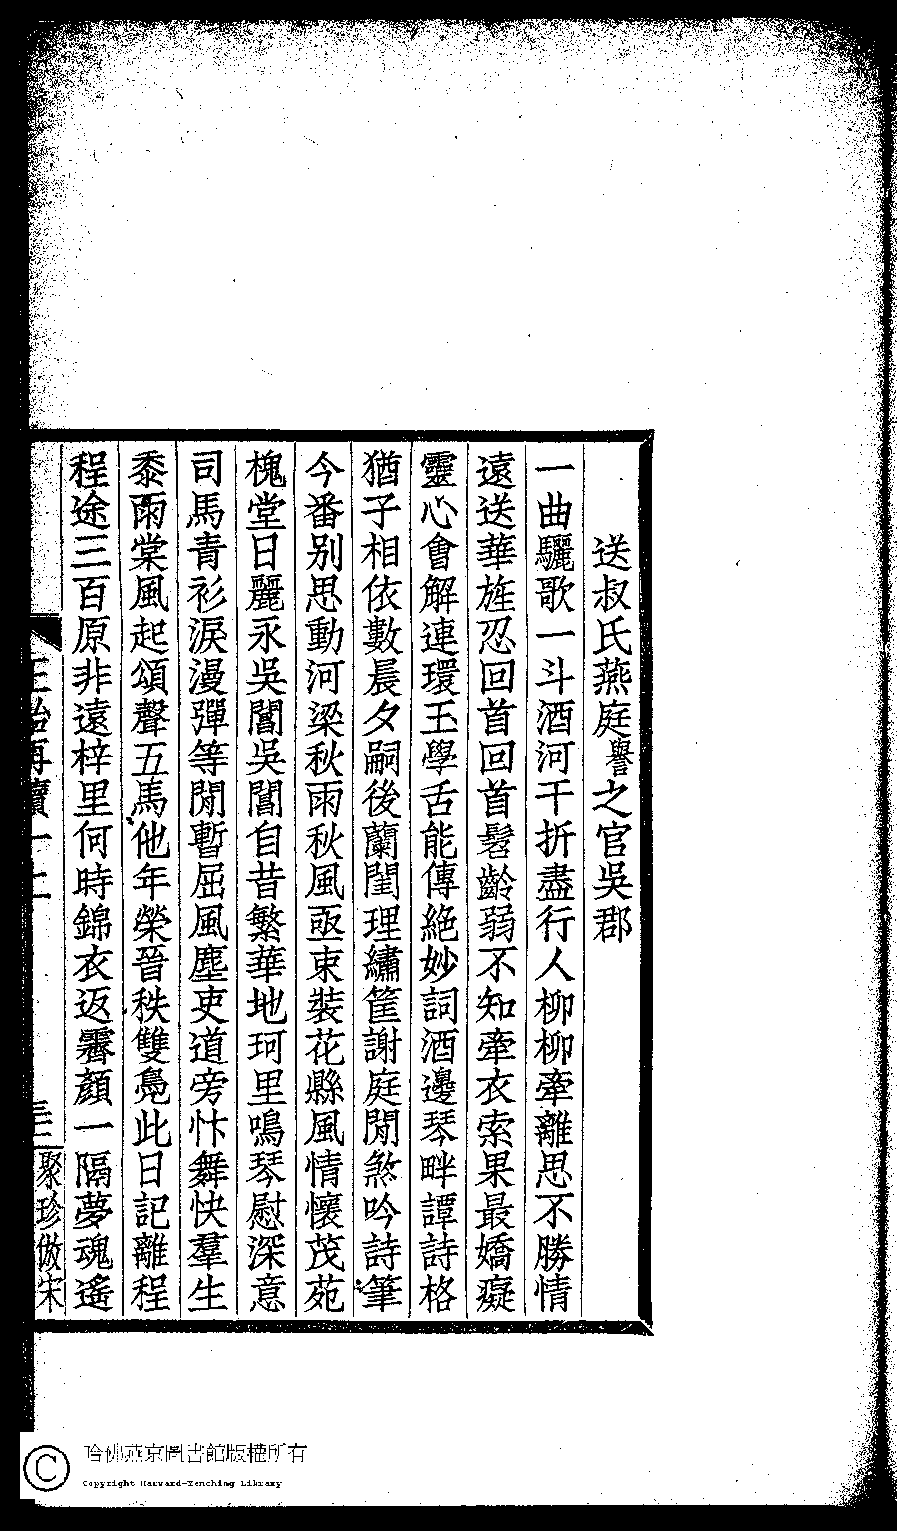 送叔氏燕庭譽之官吳郡
一曲驪歌一斗酒河干折盡行人柳柳牽離思不勝情
遠送華旌忍回首回首髫齡弱不知牽衣索果最嬌癡
靈心會解連環玉學舌能傳絕妙詞酒邊琴畔譚詩格
猶子相依數晨夕嗣後蘭閨理繡筐謝庭閒煞吟詩筆
今番別思動河梁秋雨秋風亟束裝花縣風情懷茂苑
槐堂日麗永吳閶吳閶自昔繁華地珂里鳴琴慰深意
司馬青衫淚漫彈等閒暫屈風塵吏道旁忭舞快羣生
黍雨棠風起頌聲五馬他年榮晉秩雙鳧此日記離程
程途三百原非遠梓里何時錦衣返霽顏一隔夢魂遙
正始再續一上
三
聚珍倣宋
哈佛燕京圖書館版權所有
Copyright Harvard-Yenching Library